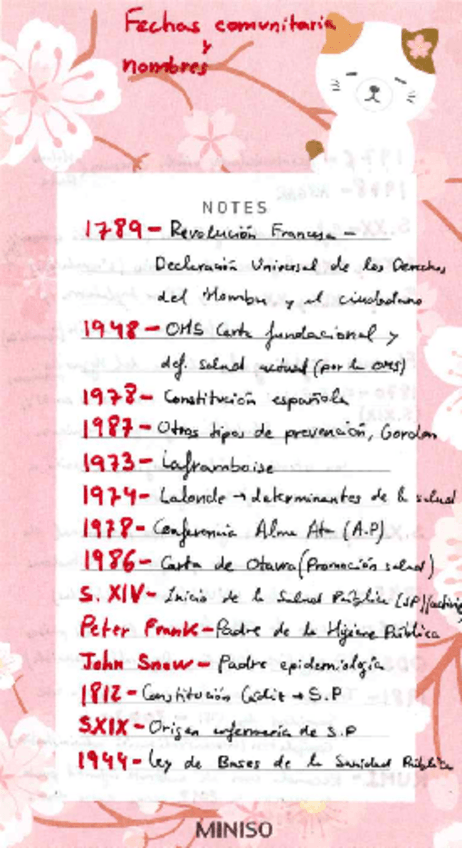 Fechas comunitaria
y
nombres
NOTES
1789 - Revolución Francesa -
Declaración Universal de los Derechos
del Hombre y el ciudadano
1948 - OMS Carta fundacional y
def. salud actual (por la OMS)
1978 - Constitución española
1987 - Otros tipos de prevención, Gordon
1973 - Laframboise
1974 - Lalonde → determinantes de la salud
1978 - Conferencia Alma Ata (A.P)
1986 - Carta de Otawa (Promoción salud)
S. XIV - Inicio de la Salud Pública (SP)
Peter Frank - Padre de la Higiene Pública
John Snow - Padre epidemiología
1812 - Constitución Cádiz → S.P
SXIX - Origen enfermería de S.P
1944 - Ley de Bases de la Sanidad Pública
MINISO